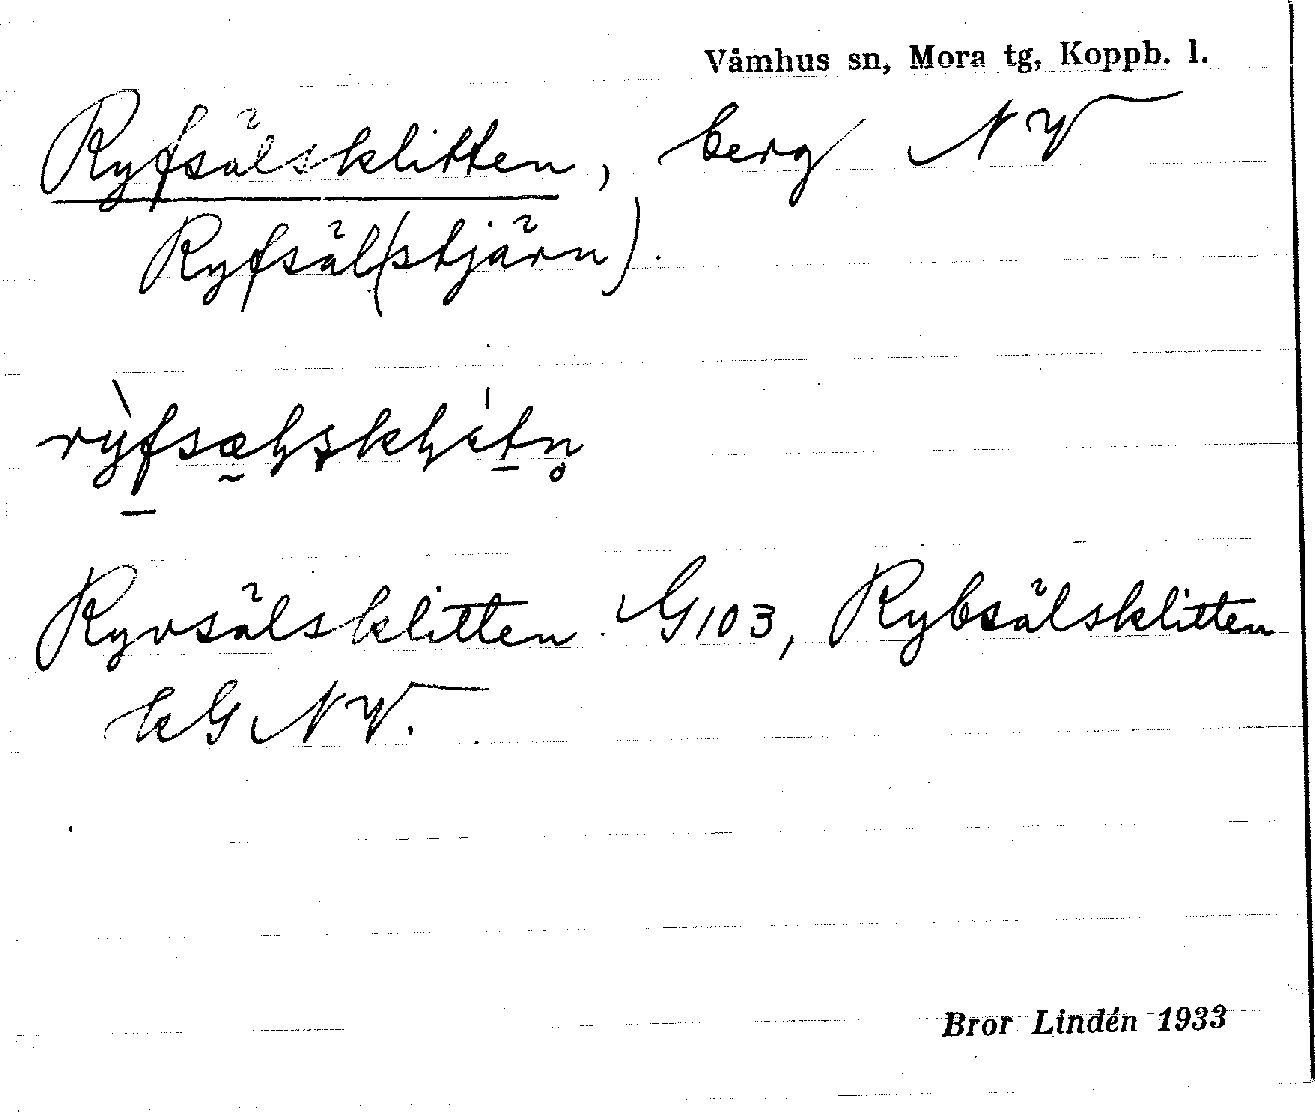 Våmhus sn, Mora tg, Koppb. l.
Ryfsälsklitten, berg NV
Ryfsäl(stjärn).
Ryvsälsklitten G103, Rybsälsklitten
kG NV.
Bror Lindén 1933